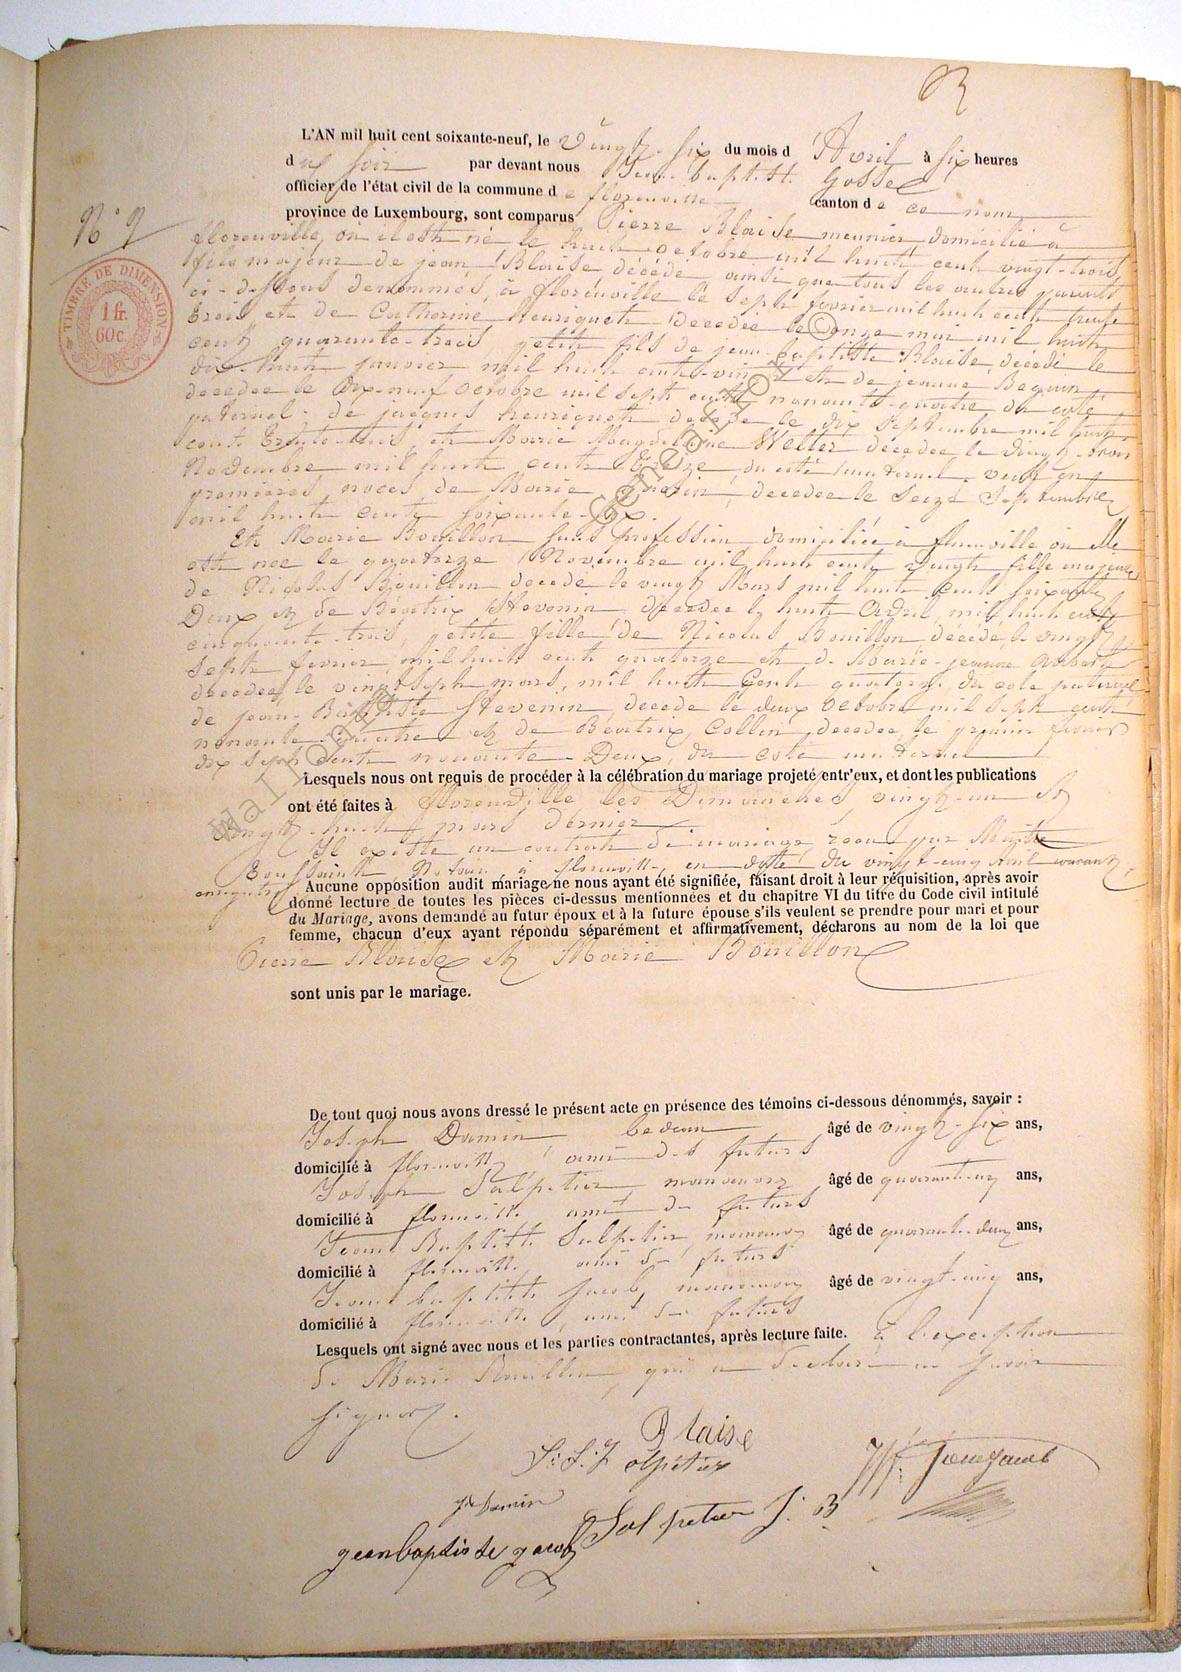 L'AN mil huit cent soixante-neuf, le Vingt-six du mois d'Avril à six heures
du soir par devant nous Jean-baptiste Gosse
officier de l'état civil de la commune de florenville canton de ce nom
N° 9
province de Luxembourg, sont comparus Pierre Blaise meunier, domicilié à
florenville, où il est né le huit octobre mil huit cent vingt-trois,
fils majeur de jean Blaise décédé ainsi que tous les autres parents
ci-dessous dénommés, à florenville le sept février mil huit cent trente
trois et de Catherine henriquet décédée le onze mai mil huit
cent quarante-trois, petit fils de jean-baptiste Blaise, décédé le
dix-huit janvier mil huit cent-vingt et de jeanne Bequin,
décédée le dix-neuf octobre mil sept cent nonante-quatre, du côté
paternel, de jacques henriquet décédé le dix septembre mil huit
cent trente-trois, et Marie Magdelaine Welter décédée le vingt-trois
Novembre mil huit cent treize, du côté maternel veuf en
premières noces de Marie décédée le seize septembre
mil huit cent soixante-six.
Et Marie Bouillon sans profession domiciliée à florenville où elle
est née le quatorze Novembre mil huit cent vingt fille majeure
de Nicolas Bouillon décédé le vingt Mars mil huit cent soixante
Deux et de Béatrix Stevenin décédée le huit Avril mil huit cent
cinquante-trois, petite fille de Nicolas Bouillon décédé le vingt
sept février mil huit cent quatorze et de Marie-jeanne
décédée, le vingt-sept mars, mil huit cent quatorze, du côté paternel
de jean-Baptiste Stevenin, décédé le deux octobre mil sept cent
nonante-quatre et de Béatrix Collin, décédée, le premier février
dix sept cent nonante-Deux, du côté maternel
Lesquels nous ont requis de procéder à la célébration du mariage projeté entr'eux, et dont les publications
ont été faites à florenville les Dimanches, vingt-un et
vingt-huit mars dernier
Il existe un contrat de mariage, reçu par Maître
Notaire à florenville, en date du vingt-cinq avril courant,
enregistré
Aucune opposition audit mariage ne nous ayant été signifiée, faisant droit à leur réquisition, après avoir
donné lecture de toutes les pièces ci-dessus mentionnées et du chapitre VI du titre du Code civil intitulé
du Mariage, avons demandé au futur époux et à la future épouse s'ils veulent se prendre pour mari et pour
femme, chacun d'eux ayant répondu séparément et affirmativement, déclarons au nom de la loi que
Pierre Blaise et Marie Bouillon
sont unis par le mariage.
De tout quoi nous avons dressé le présent acte en présence des témoins ci-dessous dénommés, savoir :
Joseph Damin, bedeau âgé de vingt-six ans,
domicilié à florenville, ami des futurs
Joseph Salpetier, manoeuvre âgé de ans,
domicilié à florenville ami des futurs
Jean Baptiste Salpetier, manoeuvre âgé de quarante-deux ans,
domicilié à florenville, ami des futurs
Jean baptiste Jacob, manoeuvre âgé de vingt-cinq ans,
domicilié à florenville, ami des futurs
Lesquels ont signé avec nous et les parties contractantes, après lecture faite. à l'exception
de Marie Bouillon, qui a déclaré ne savoir
signer.
Blaise
Jh Damin
Salpetier J: B
jean baptiste jacob
TIMBRE DE DIMENSION
1 fr.
60 c.
© Geneafron
Wallonie